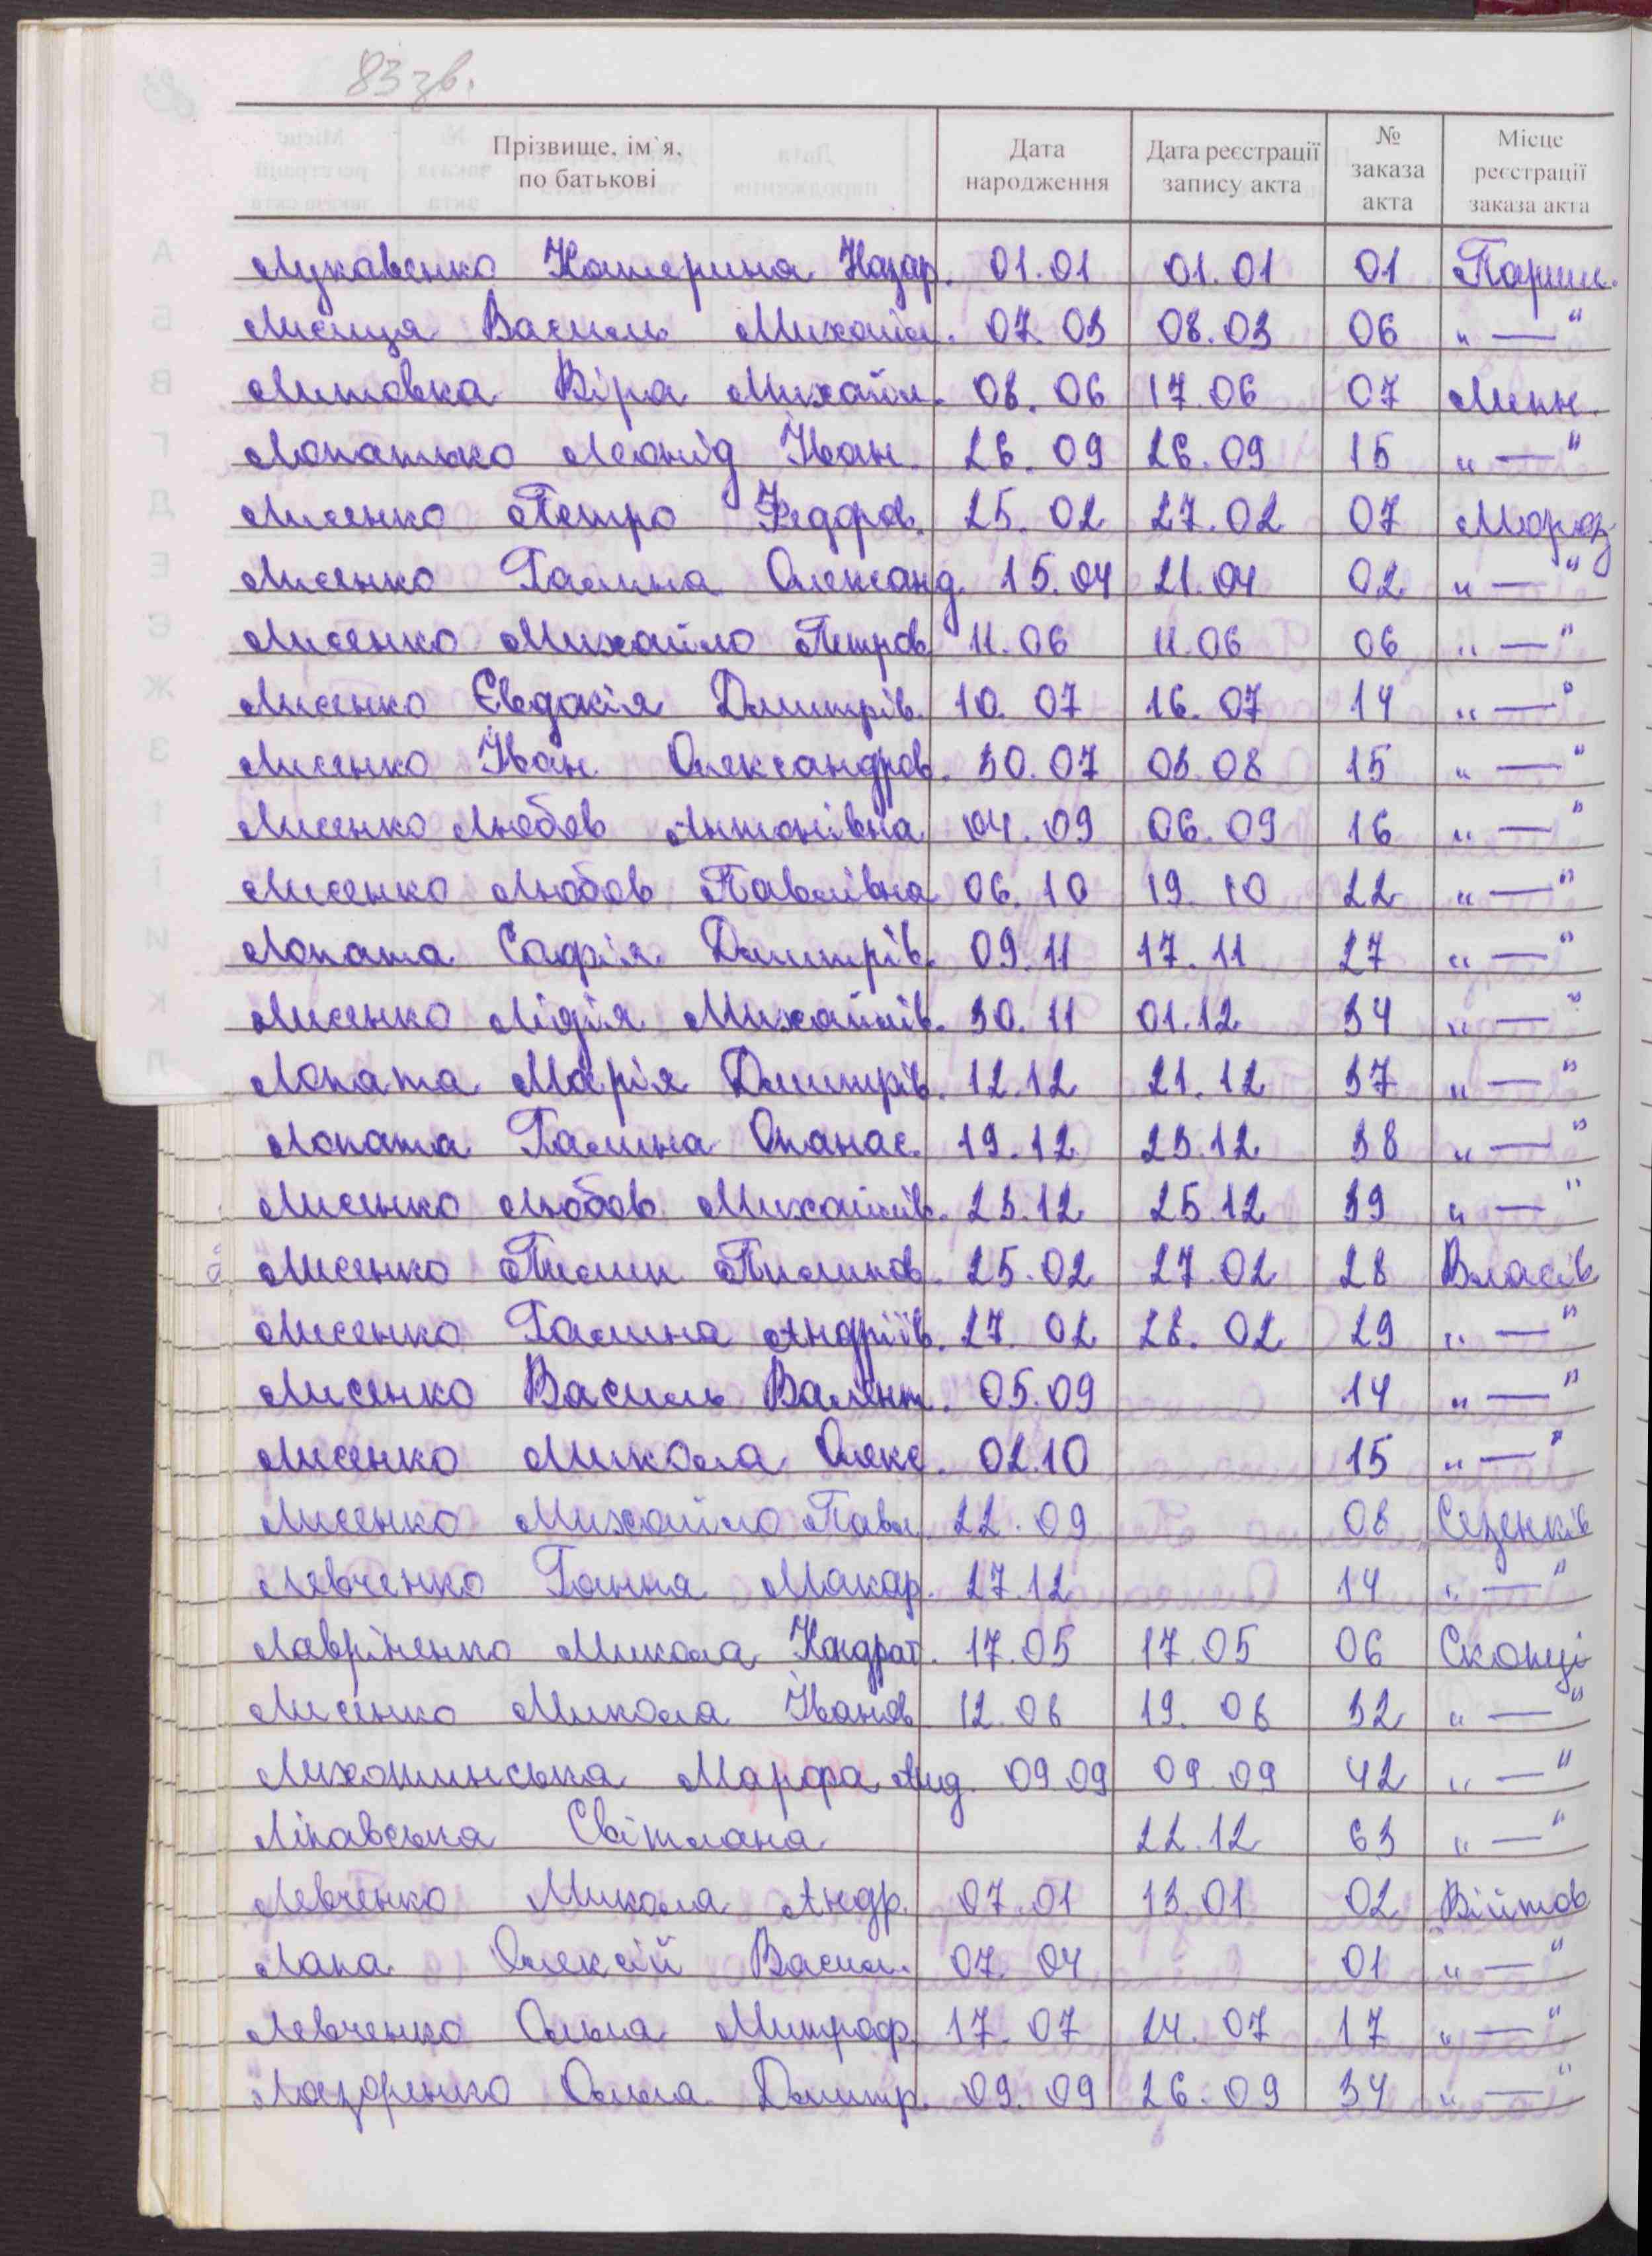 83 зв.
Прізвище, ім`я, по батькові Дата народження Дата реєстрації запису акта № заказа акта Місце реєстрації заказа акта
Лукавенко Катерина Назар. 01.01 01.01 01 Париш.
Лисиця Василь Михайл. 07.03 08.03 06 „ — “
Литовка Віра Михайл. 08.06 17.06 07 Мики.
Лопатько Леонід Іван. 26.09 26.09 15 „ — “
Лисенко Петро Федоров. 25.02 27.02 07 Мороз
Лисенко Галина Олександ. 15.04 21.04 02 „ — “
Лисенко Михайло Петров 11.06 11.06 06 „ — “
Лисенко Євдокія Дмитрів. 10.07 16.07 14 „ — “
Лисенко Іван Олександров. 30.07 03.08 15 „ — “
Лисенко Любов Антонівна 04.09 06.09 16 „ — “
Лисенко Любов Павлівна 06.10 19.10 22 „ — “
Лопата Софія Дмитрів. 09.11 17.11 27 „ — “
Лисенко Лідія Михайлів. 30.11 01.12 34 „ — “
Лопата Марія Дмитрів. 12.12 21.12 37 „ — “
Лопата Галина Опанас. 19.12 23.12 38 „ — “
Лисенко Любов Михайлів. 23.12 25.12 39 „ — “
Лисенко Пилип Пилипов. 25.02 27.02 28 Власів
Лисенко Галина Андріїв. 27.02 28.02 29 „ — “
Лисенко Василь Валент. 05.09 14 „ — “
Лисенко Микола Олекс. 02.10 15 „ — “
Лисенко Михайло Павл. 22.09 08 Сезенків
Левченко Ганна Макар. 27.12 14 „ — “
Лавріненко Микола Кондрат. 17.05 17.05 06 Скопці
Лисенко Микола Іванов 12.06 19.06 32 „ — “
Лихошинська Марфа Анд. 09.09 09.09 42 „ — “
Ліпавська Світлана 22.12 63 „ — “
Левченко Микола Андр. 07.01 13.01 02 Війтов
Лапа Олексій Васил. 07.04 01 „ — “
Левченко Ольга Митроф. 17.07 24.07 17 „ — “
Лазоренко Ольга Дмитр. 09.09 26.09 34 „ — “